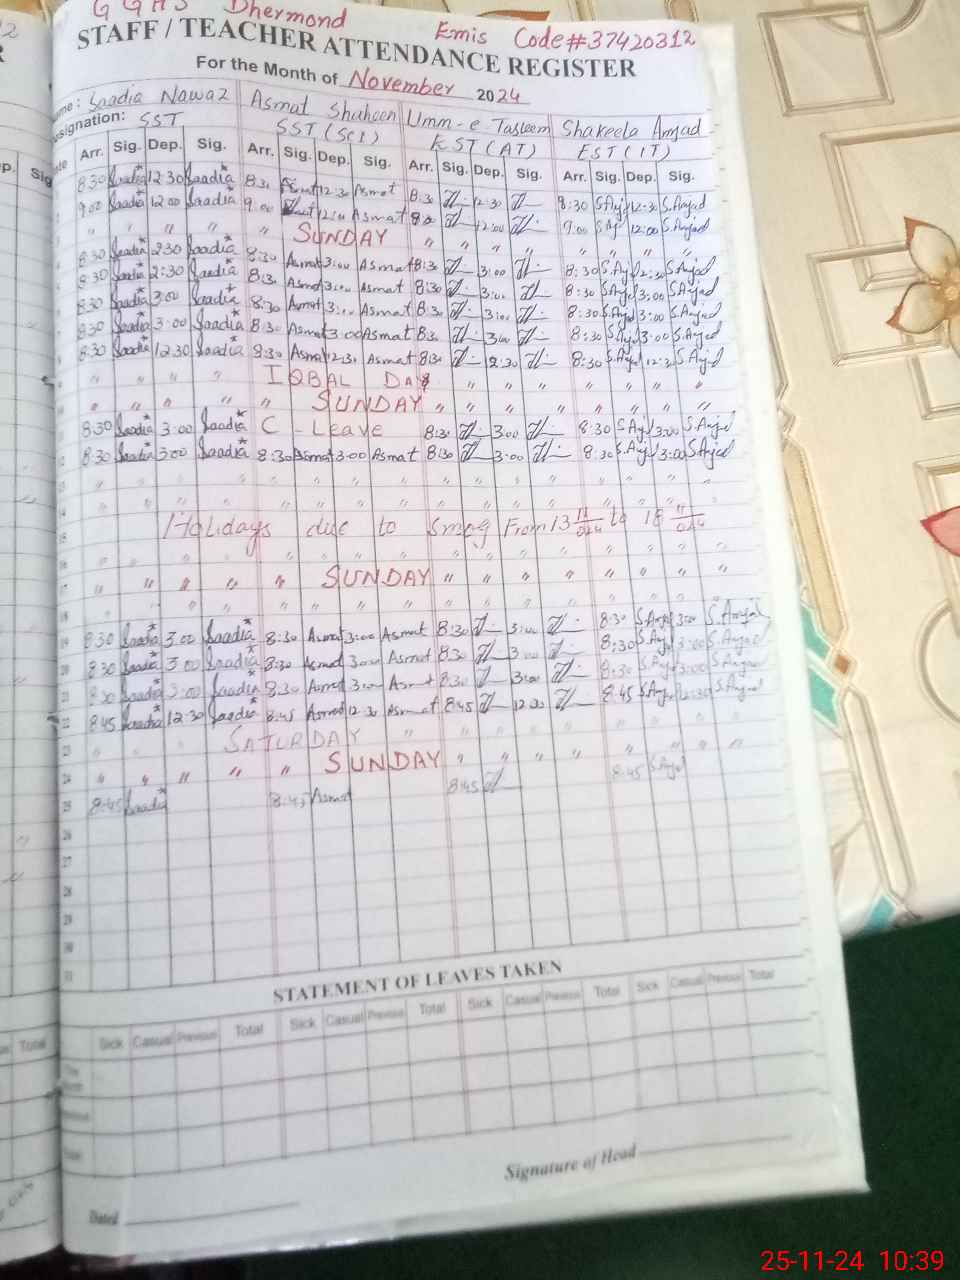 G G H S Dhermond
Emis Code#37420312
STAFF / TEACHER ATTENDANCE REGISTER
For the Month of November 2024
Name: Saadia Nawaz Asmat Shaheen Umm-e Tasleem Shakeela Amjad
Designation: SST SST (Sci) EST (AT) EST (IT)
Arr. Sig. Dep. Sig. Arr. Sig. Dep. Sig. Arr. Sig. Dep. Sig. Arr. Sig. Dep. Sig.
8:30 Saadia 12:30 Saadia 8:30 Asmat 12:30 Asmat 8:30 12:30 8:30 S.Anjd 12:30 S.Amjad
9:00 Saadia 12:00 Saadia 9:00 Asmat Asmat 12:00 9:00 S.Anjd 12:00 S.Amjad
" " " " " SUNDAY " " " " " " " "
8:30 Saadia 2:30 Saadia 8:30 Asmat 3:00 Asmat 8:30 3:00 8:30 S.Anjd 2:30 S.Anjad
8:30 Saadia 2:30 Saadia 8:30 Asmat 3:00 Asmat 8:30 3:00 8:30 S.Anjd 3:00 S.Anjad
8:30 Saadia 3:00 Saadia 8:30 Asmat 3:00 Asmat 8:30 3:00 8:30 S.Anjd 3:00 S.Anjad
8:30 Saadia 3:00 Saadia 8:30 Asmat 3:00 Asmat 8:30 3:00 8:30 S.Anjd 3:00 S.Anjad
8:30 Saadia 12:30 Saadia 8:30 Asmat 12:30 Asmat 8:30 8:30 S.Anjd 12:30 S.Anjad
" " " " IQBAL DAY " " " " " " "
" " " " " SUNDAY " " " " " " " "
8:30 Saadia 3:00 Saadia C - Leave 8:30 3:00 8:30 S.Anjd 3:00 S.Anjad
12 8:30 Saadia 3:00 Saadia 8:30 Asmat 3:00 Asmat 8:30 3:00 8:30 S.Anjd 3:00 S.Anjad
13
14
15 Holidays due to Smog From 13 11/024 to 18 11/024
16
17 " " " " " SUNDAY " " " " " " " "
18
19 8:30 Saadia 3:00 Saadia 8:30 Asmat 3:00 Asmat 8:30 3:00 8:30 S.Anjd 3:00 S.Anjad
20 8:30 Saadia 3:00 Saadia 8:30 Asmat 3:00 Asmat 8:30 3:00 8:30 S.Anjd 3:00 S.Anjad
21 8:30 Saadia 3:00 Saadia 8:30 Asmat 3:00 Asmat 8:30 3:00 8:30 S.Anjd 3:00 S.Anjad
22 8:45 Saadia 12:30 Saadia 8:45 Asmat 12:30 Asmat 8:45 12:30 8:45 S.Anjd 12:30 S.Anjad
23 SATURDAY
24 " " " " " SUNDAY " " " " " " "
25 8:45 Saadia 8:45 Asmat 8:45 8:45 S.Anjd
26
27
28
29
30
31
STATEMENT OF LEAVES TAKEN
Sick Casual Previous Total Sick Casual Previous Total Sick Casual Previous Total Sick Casual Previous Total
Signature of Head
Dated
25-11-24 10:39